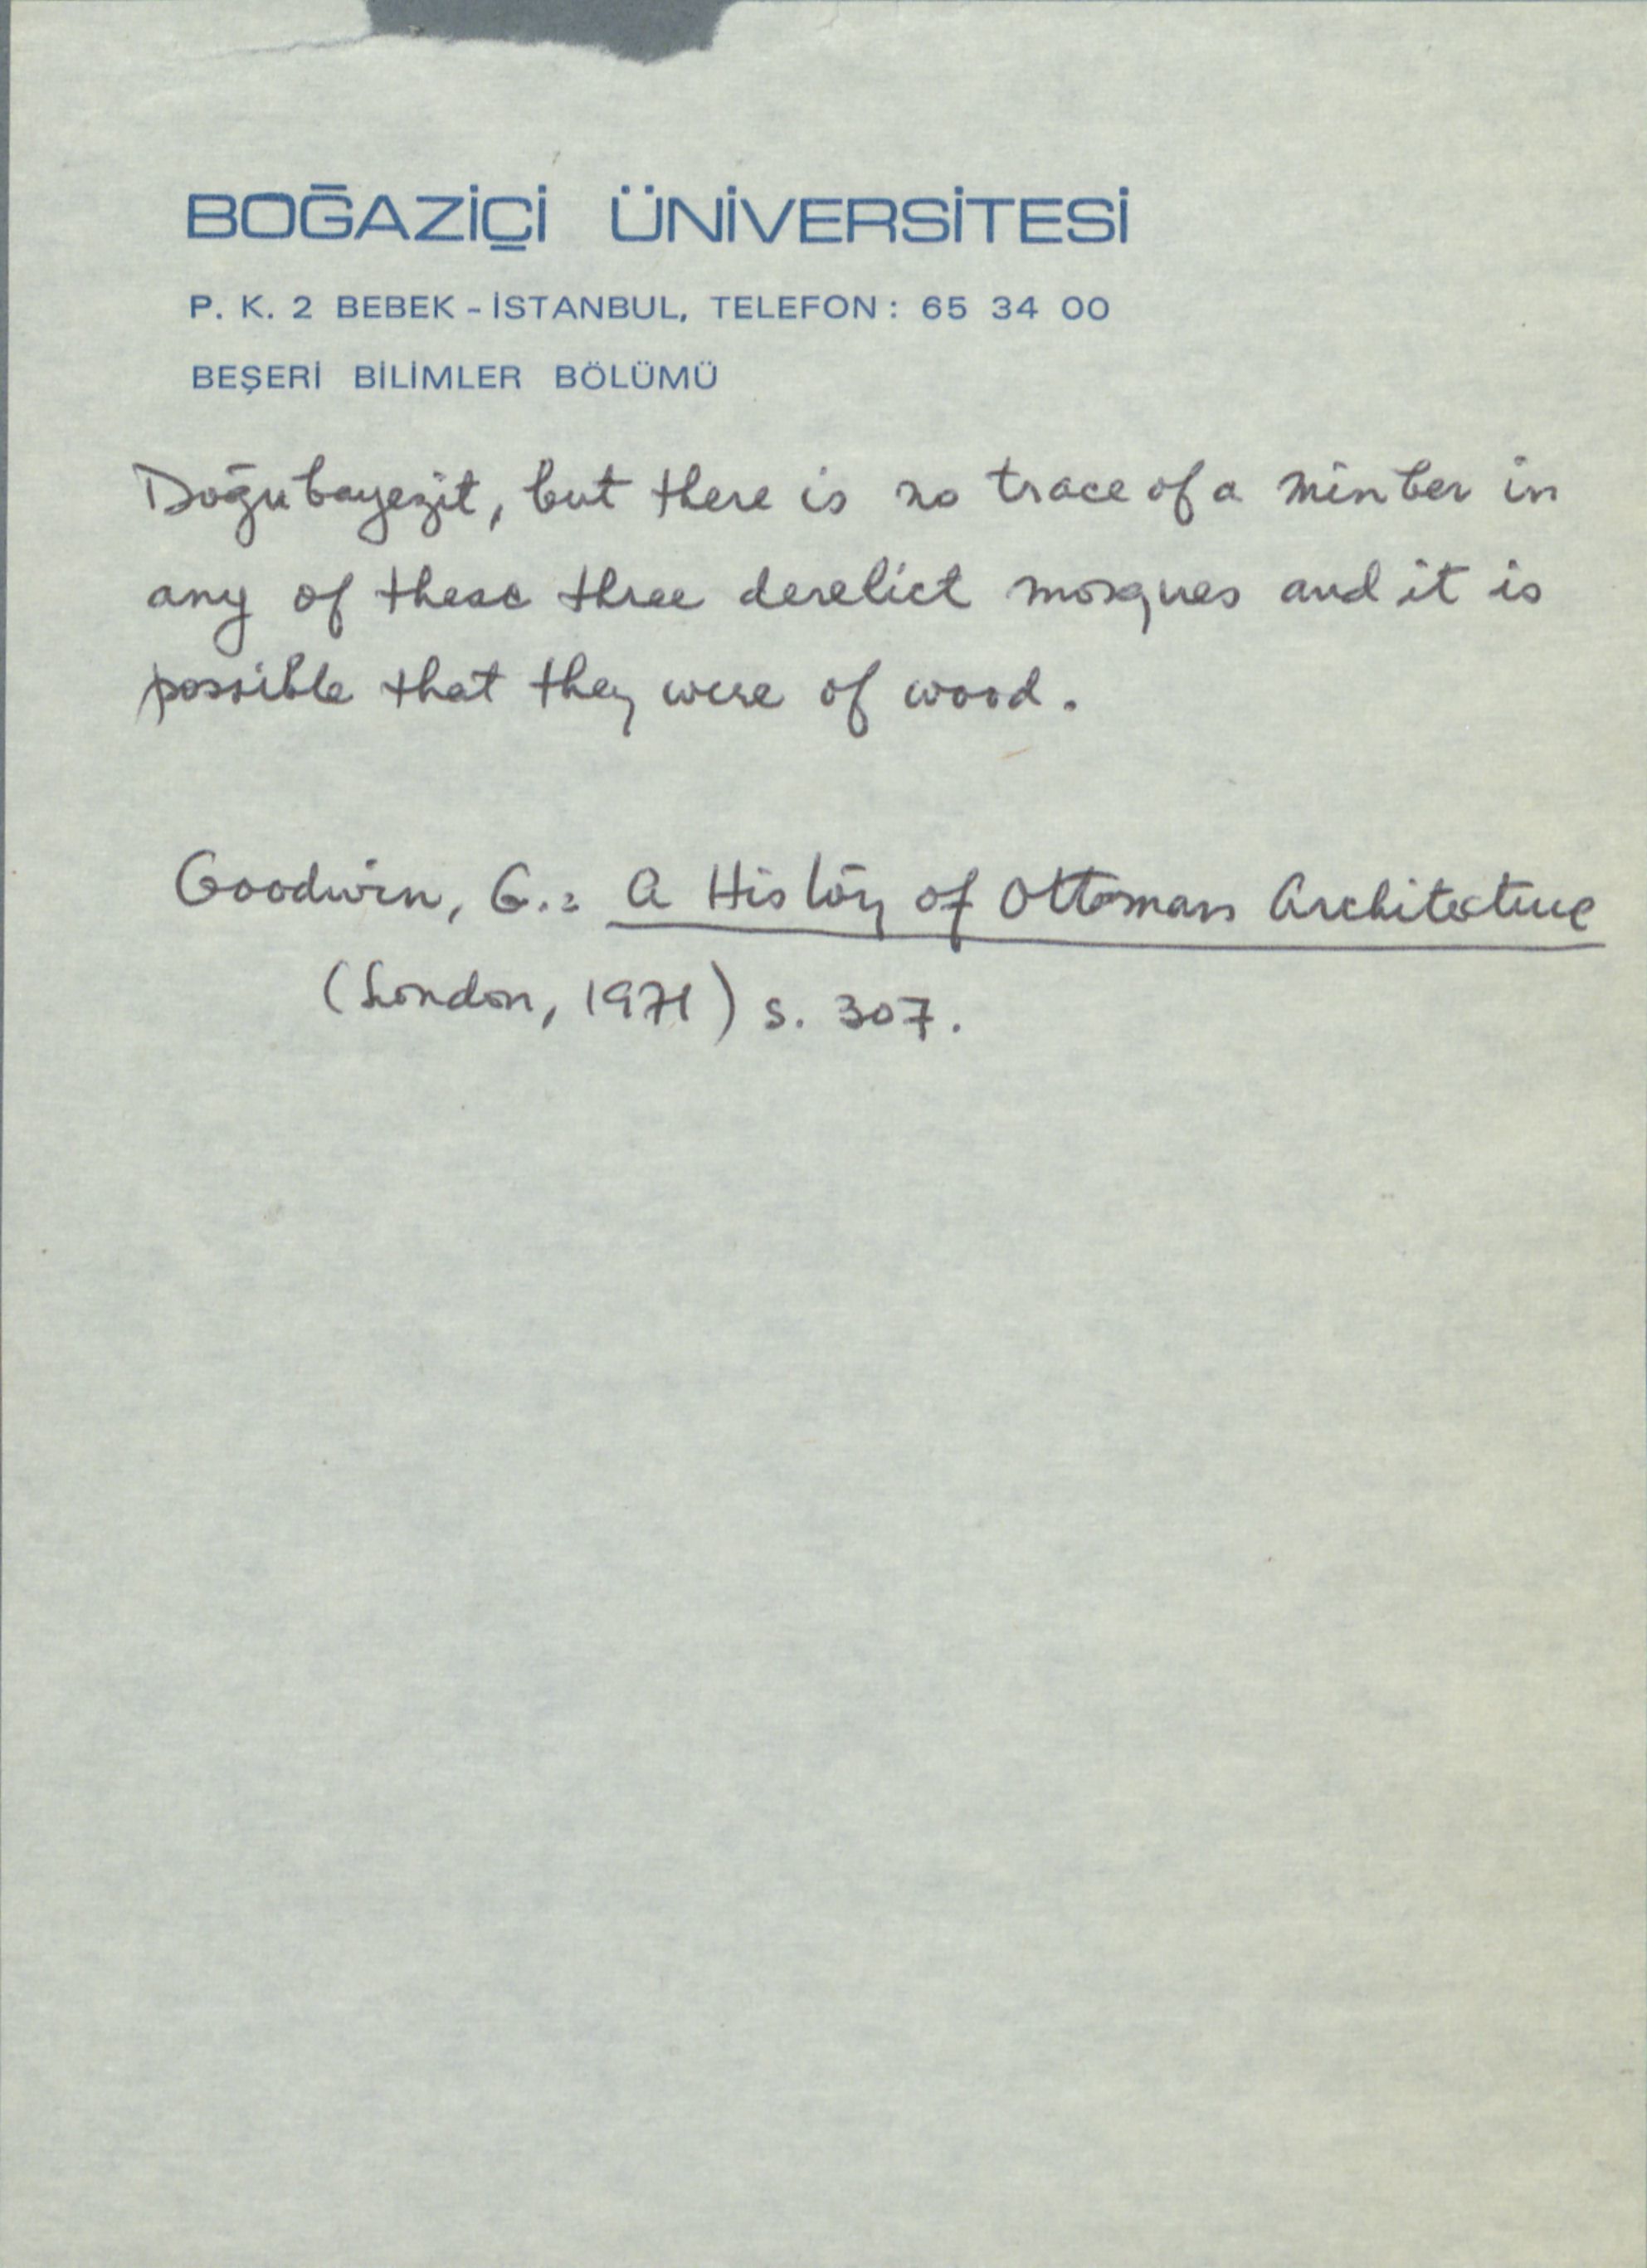 BOĞAZİÇİ ÜNİVERSİTESİ
P. K. 2 BEBEK - İSTANBUL, TELEFON : 65 34 00
BEŞERİ BİLİMLER BÖLÜMÜ
Doğubayezit, but there is no trace of a minber in
any of these three derelict mosques and it is
possible that they were of wood.
Goodwin, G.: A History of Ottoman Architecture
(London, 1971) s. 307.